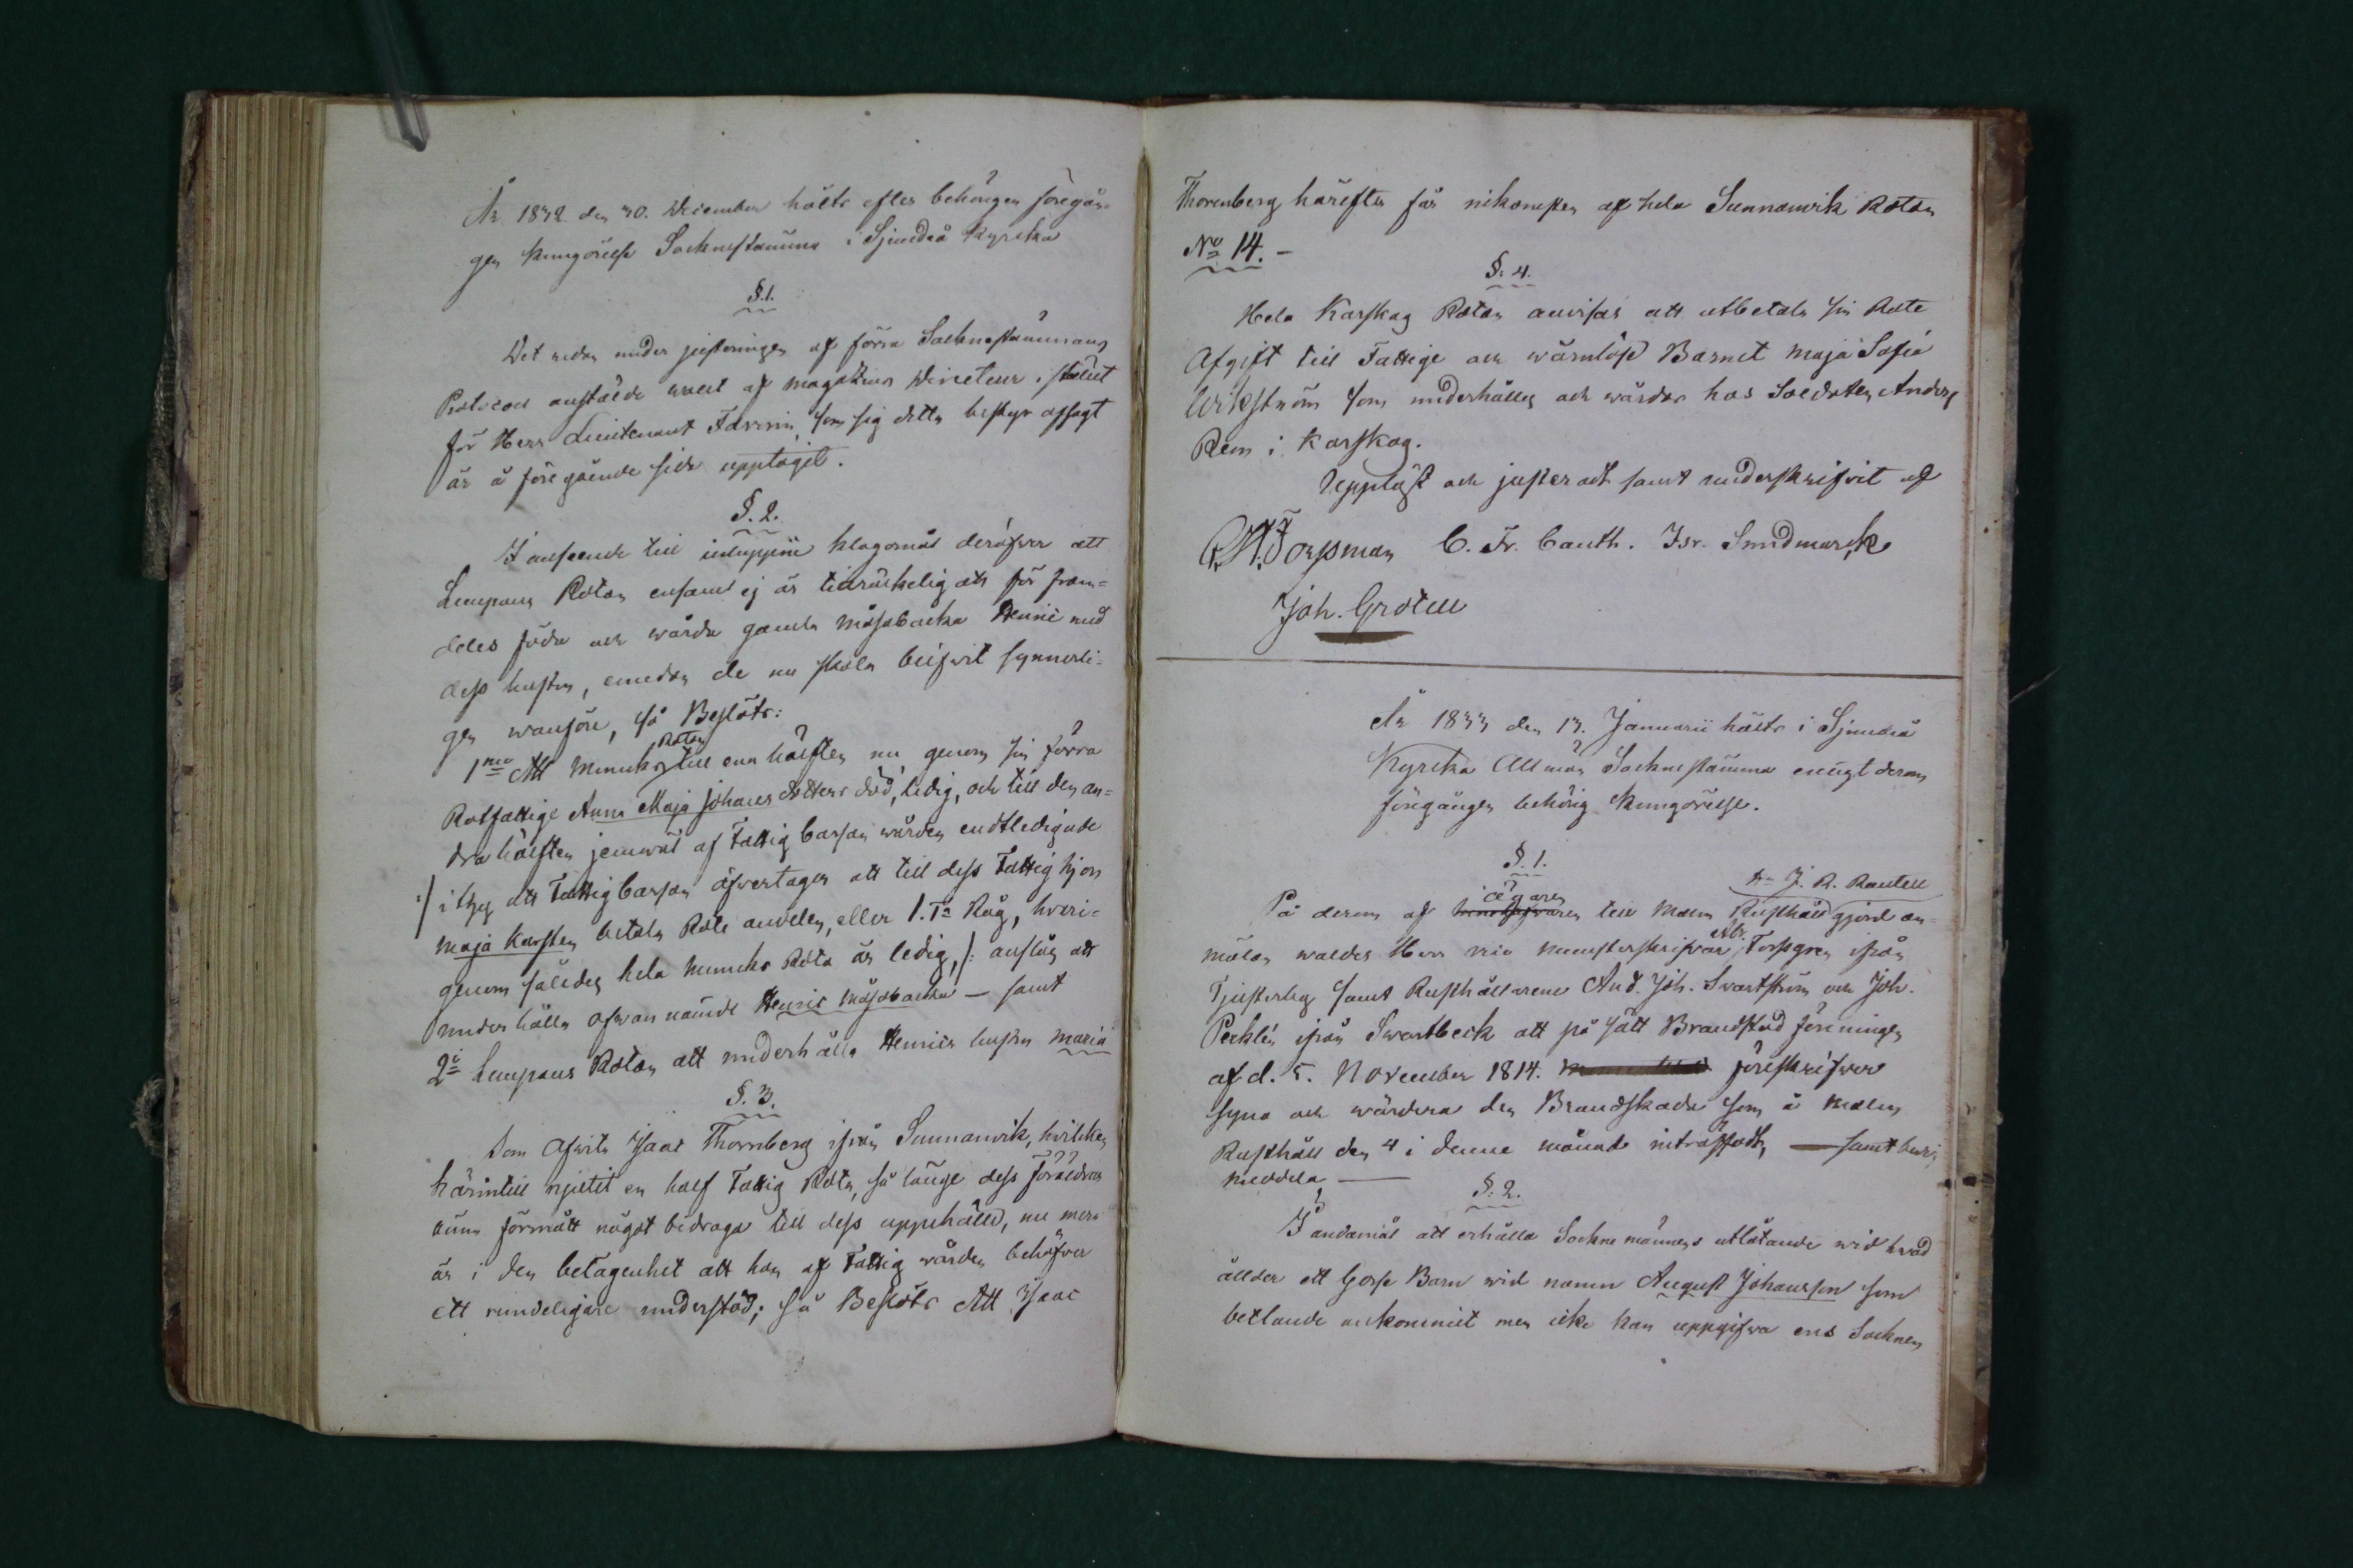 År 1832 den 30. December hölts efter behörigen föregån-
gen kungörelse Socknestämma i Sjundeå Kyrcka
§.1.
Det redan under justeringen af förra Socknestämmans
Protocoll anstälde wahl af magatins Directeur i stället
för Herr Lieutenant Favorin, som sig detta bestyr afsagt
är å föregående sida upptagit.
§.2.
I anseende till inluppne klagomål deröfwer att
Lempans Rotan ensam ej är tillräckelig att för fram-
deles föda och wårda gamla Måsabacka Henric med
dess hustru, emedan de nu skola blifwit synnerli-
gen wanföre, så Beslöts:
1mo Att Munks Rotan till ena hälften nu genom sin förra
Rotfattige Anna Maja Johans dotters död, ledig, och till den an-
dra hälften jemwäl af Fattig Cassan wården endtledigade
:/ i thy att Fattig Cassan öfwertager att till dess Fattighjon
Maja Karsten betala Rote andelen, eller 1. Ta Råg, hvari-
genom således hela Munks Rota är ledig, /: anslås att
underhålla ofwannämde Henric Måsabacka — samt
2: Lempans Rotan att underhålla Henrics hustru Maria
§.3.
Som Afwita Isaac Thornberg ifrån Sunnanwik, hvilcken
härintill njutit en half Fattig Rota, så länge dess föräldrar
ännu förmått något bidraga till dess uppehälle, nu mera
är i den belägenhet att han af Fattig wården behöfwer
ett rundeligare understöd; så Beslöts Att Isaac
Thorenberg härefter får uikomsten af hela Sunnanwik Rotan
No 14. -
§.4.
Hela Karskog Rotan anvisas att utbetala sin Rote
Afgift till Fattige och wärnlösa Barnet Maja Sofia
Wikström som underhålles och wårdas hos Soldaten Anders
Rem i Karskog.
Uppläst och justeradt samt underskrifvit af
Forssman C. Fr. Cauth. Isr. Sundmarck
Joh. Grotell
År 1833 den 13. Januarii hölts i Sjundeå
Kyrcka Allmän Socknestämma enligt derom
föregången behörig Kungörelse.
§.1.
På derom af ägaren till Malm Rusthåll Hr J. R. Rautell gjord an-
mälan waldes Herr vice munsterskrifvar Abr. Forsgren ifrån
Tjusterby samt Rusthållarene And. Joh. Svartström och Joh.
Perklén ifrån Swartbeck att på sätt Brandstod föreningen
af d. 5. November 1814. föreskrifwer
syna och wärdera den Brandskada som å Malm
Rusthåll den 4 i denne månad inträffadt, — samt bevis
meddela —
§.2.
I ändamål att erhålla Sockne männens utlåtande wid hwad
ållder ett Gosse Barn wid namn August Johansson som
betlande ankommit men icke kan uppgifwa ens Socknen